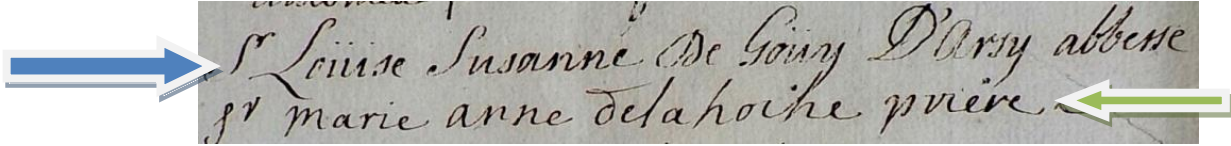 Sr Loüise Susanne De Goüy D'Arsy abbesse
sr marie anne delahoihe prière